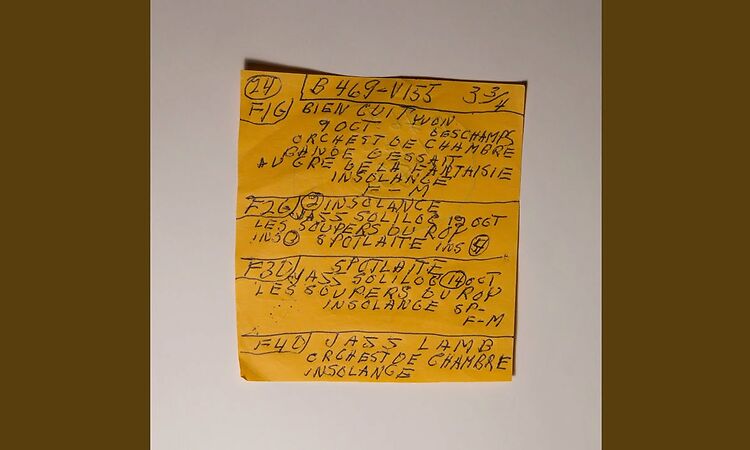 24 B 469-V155 3 3/4
F1G BIEN CUIT YVON
9 OCT DESCHAMPS
ORCHEST DE CHAMBRE
BANDE DESSAIT
AU GRE DE LA FANTAISIE
INSOLANGE
F-M
F2G INSOLANCE
JASS SOLILOG 19 OCT
LES SOUPERS DU ROY
INS SPOTLAITE INS
F3D SPOTLAITE
JASS SOLILOG 14 OCT
LES SOUPERS DU ROY
INSOLANGE SP-
F-M
F4D JASS LAMB
ORCHEST DE CHAMBRE
INSOLANGE